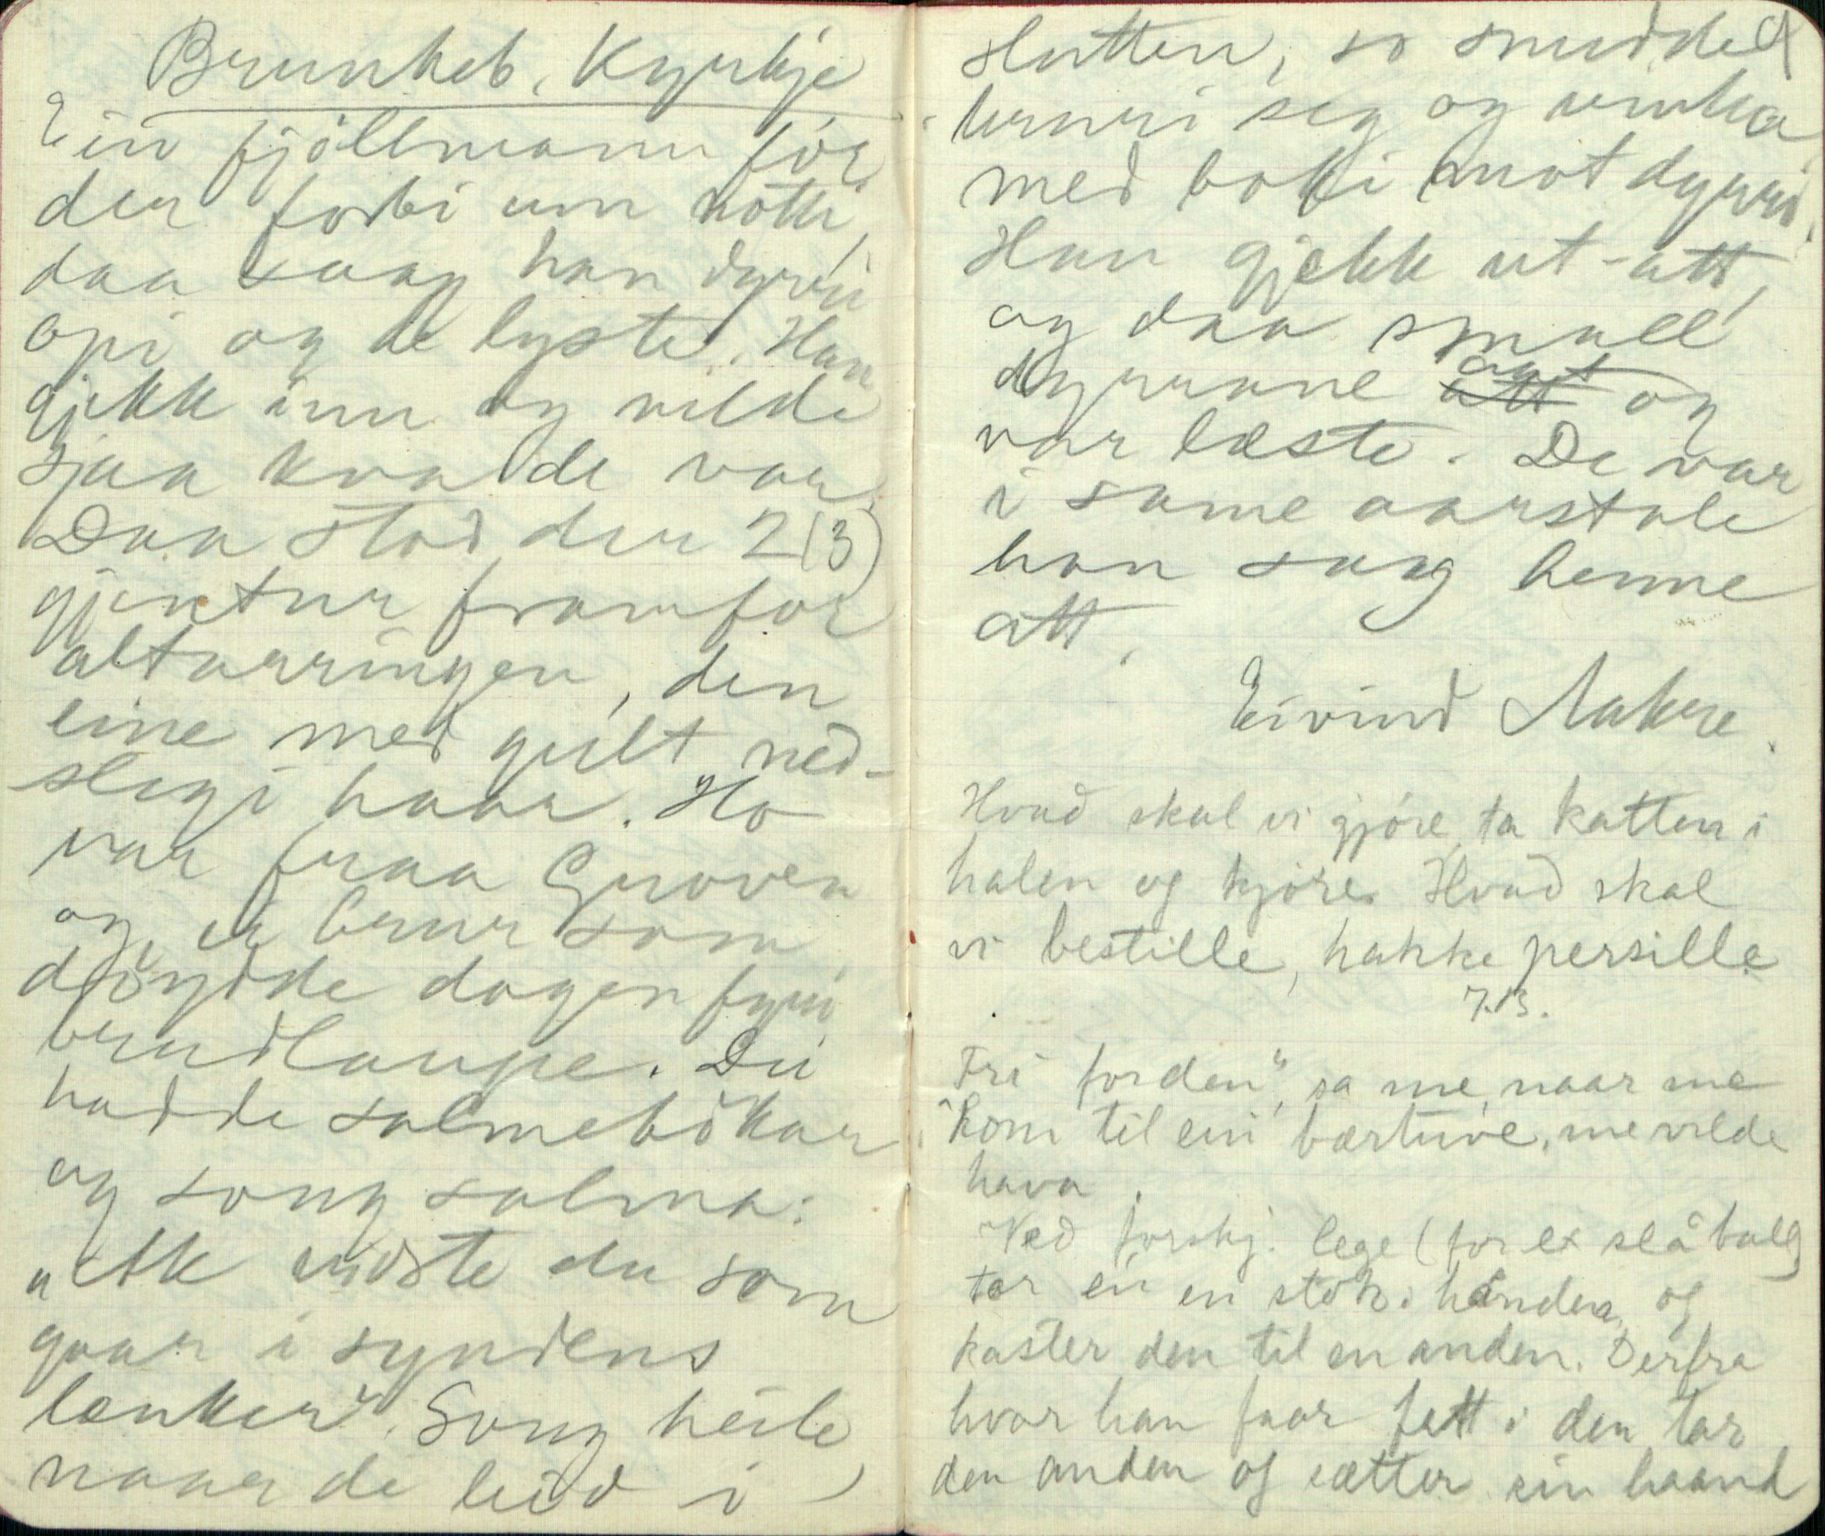 Brunkeb. Kyrkje
Ein fjöllmann fór
der forbi um notti,
daa saag han dyrri
opi og de lyste. Han
gjekk inn og vilde
sjaa kva de var.
Daa stod der 2 (3)
gjentur framfor
altarringen, den
eine med gult ned-
slegi haar. Ho
var fraa Groven
og ei brur som
döydde dagen fyri
brudlaupe. Dei
hadde salmebökar
og song salma:
"Ak vidste du som
gaar i syndens
lænker". Song heile
naar de leid i
slutten, so snudde
bruri seg og vinka
med boki mot dyrri.
Han gjekk ut-att,
og daa small
dyrrane att og
var læste. De var
i same aarstale
han saag henne
att.
Eivind Aakre.
Hvad skal vi gjöre, ta katten i
halen og kjöre. Hvad skal
vi bestille, hakke persille
7.B.
Fri forden", sa me, naar me
kom til ein bærtuve, me vilde
hava.
Ved forskj. lege (for ex slå ball)
tar en en stok i hånden og
kaster den til en anden. Derfra
hvor han faar fatt i den tar
den anden og sætter sin haand